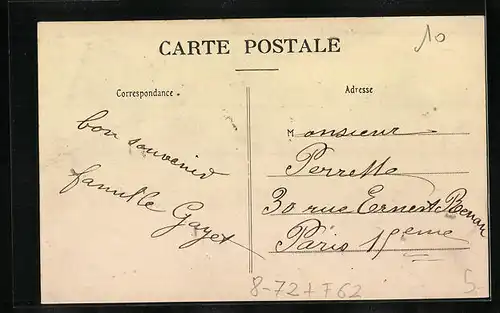 CARTE POSTALE
10
Correspondance
Adresse
bon souvenir
famille Gayet
Monsieur
Perrette
30 rue Ernest Renan
Paris 15eme
8-72+F62
5-